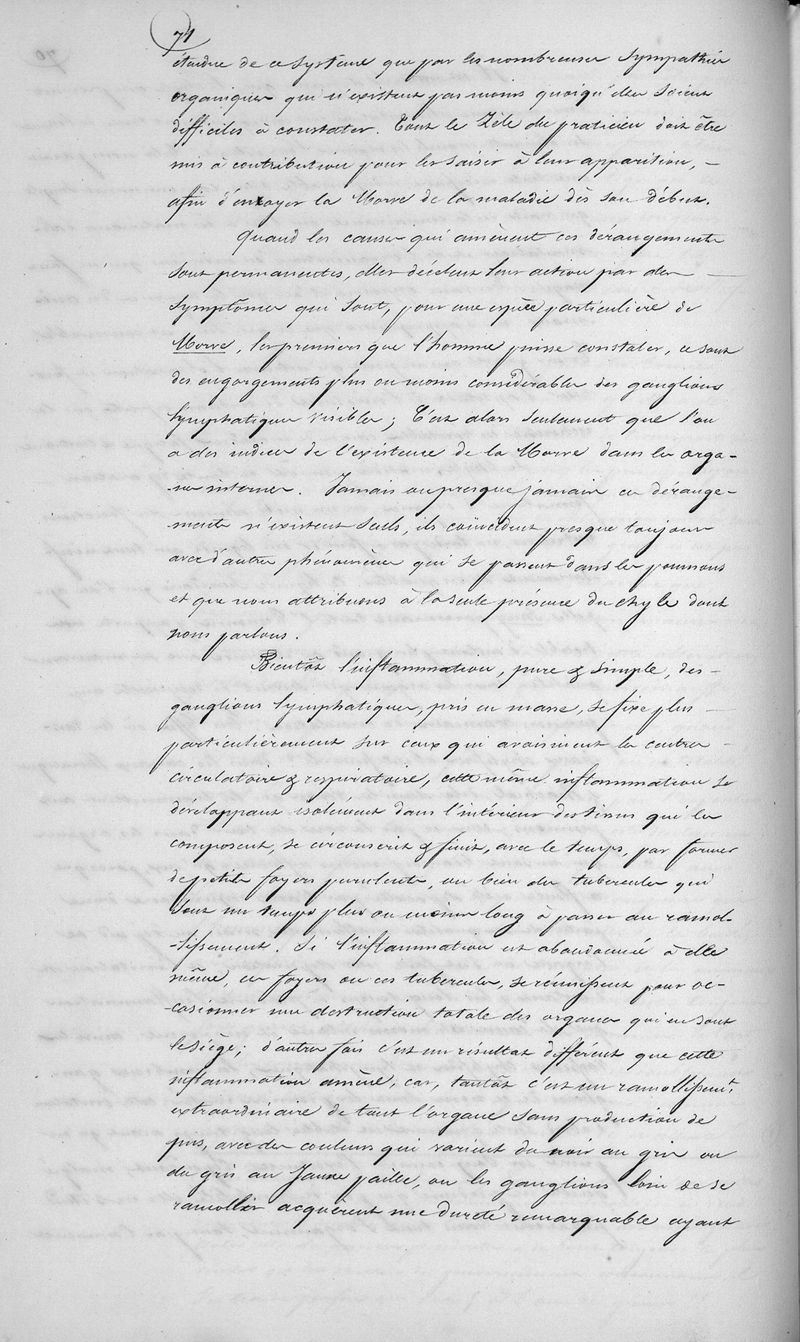 71
étendue de ce système que par les nombreuses sympathies
organiques qui n'existent pas moins quoiqu'elles soient
difficiles à constater. Tout le zèle du praticien doit être
mis à contribution pour les saisir à leur apparition, –
afin d'enrayer la Morve de la maladie dès son début.
Quand les causes qui amènent ces dérangements
sont permanentes, elles décèlent leur action par des –
symptômes qui sont, pour une espèce particulière de
Morve, les premiers que l'homme puisse constater, ce sont
des engorgements plus ou moins considérables des ganglions
lymphatiques visibles; C'est alors seulement que l'on
a des indices de l'existence de la Morve dans les orga-
-nes internes. Jamais ou presque jamais ces dérange-
-ments n'existent seuls, ils coïncident presque toujours
avec d'autres phénomènes qui se passent dans les poumons
et que nous attribuons à la seule présence du chyle dont
nous parlons.
Bientôt l'inflammation, pure & simple, des –
ganglions lymphatiques, pris en masse, se fixe plus –
particulièrement sur ceux qui avoisinent les centres –
circulatoire & respiratoire, cette même inflammation se
développant isolément dans l'intérieur des tissus qui les
composent, se circonscrit & finit, avec le temps, par former
de petits foyers purulents, ou bien des tubercules qui
sont un temps plus ou moins long à passer au ramol-
-lissement. Si l'inflammation est abandonnée à elle
même, ces foyers ou ces tubercules, se réunissent pour oc-
-casionner une destruction totale des organes qui en sont
le siège; d'autres fois c'est un résultat différent que cette
inflammation amène, car, tantôt c'est un ramollissemt.
extraordinaire de tout l'organe sans production de
pus, avec des couleurs qui varient du noir au gris ou
du gris au jaune paille, ou les ganglions loin de se
ramollir acquèrent une dureté remarquable ayant